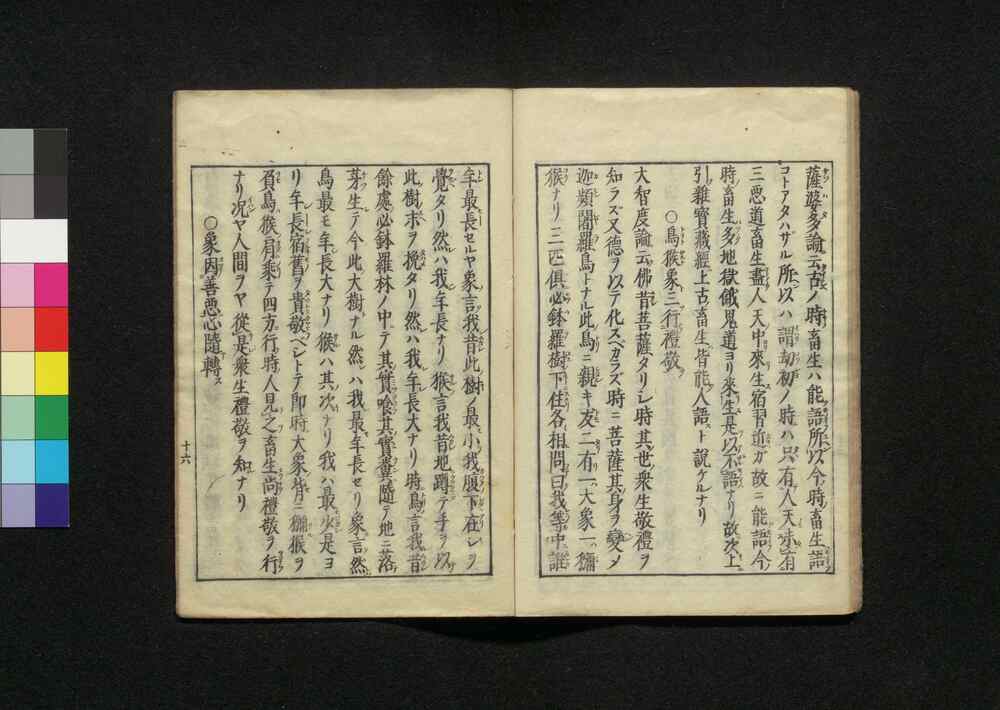 薩婆多論云古ノ時畜生ハ能語所以今時畜生語
コトアタハザル所以ハ謂劫初ノ時ハ只有人天未有
三惡道畜生盡人天中來生宿習近ガ故ニ能語今
時畜生多地獄餓鬼道ヨリ來生是以不語ナリ故次上
引雜寳藏經上古畜生皆能人語スト說ケルナリ
〇鳥猴象三行禮敬
大智度論云佛昔菩薩タリシ時其世衆生敬禮ヲ
知ラズ又德ヲ以テ化スベカラズ時ニ菩薩其身ヲ變メ
迦頻闍羅鳥トナル此鳥ニ親キ友二有一大象一獼
猴ナリ三匹俱必鉢羅樹下住各相問曰我等中誰
年最長セルヤ象言我昔此樹ノ最小我腹下在シヲ
覺タリ然ハ我年長ナリ猴言我昔地蹲テ手ヲ以
此樹ボヲ挽タリ然ハ我年長大ナリ時鳥言我昔
餘處必鉢羅林ノ中テ其實喰其實糞隨テ地ニ落
芽生テ今此大樹ナル然ハ我最年長セリ象言然
鳥最モ年長大ナリ猴ハ其次ナリ我ハ最少是ヨ
リ年長宿舊ヲ貴敬ベシトテ即時大象背ニ獼猴ヲ
負鳥猴肩乘テ四方行時人見之畜生尚禮敬ヲ行
ナリ况ヤ人間ヲヤ從是衆生禮敬ヲ知ナリ
〇象因善惡心隨轉ス
十六